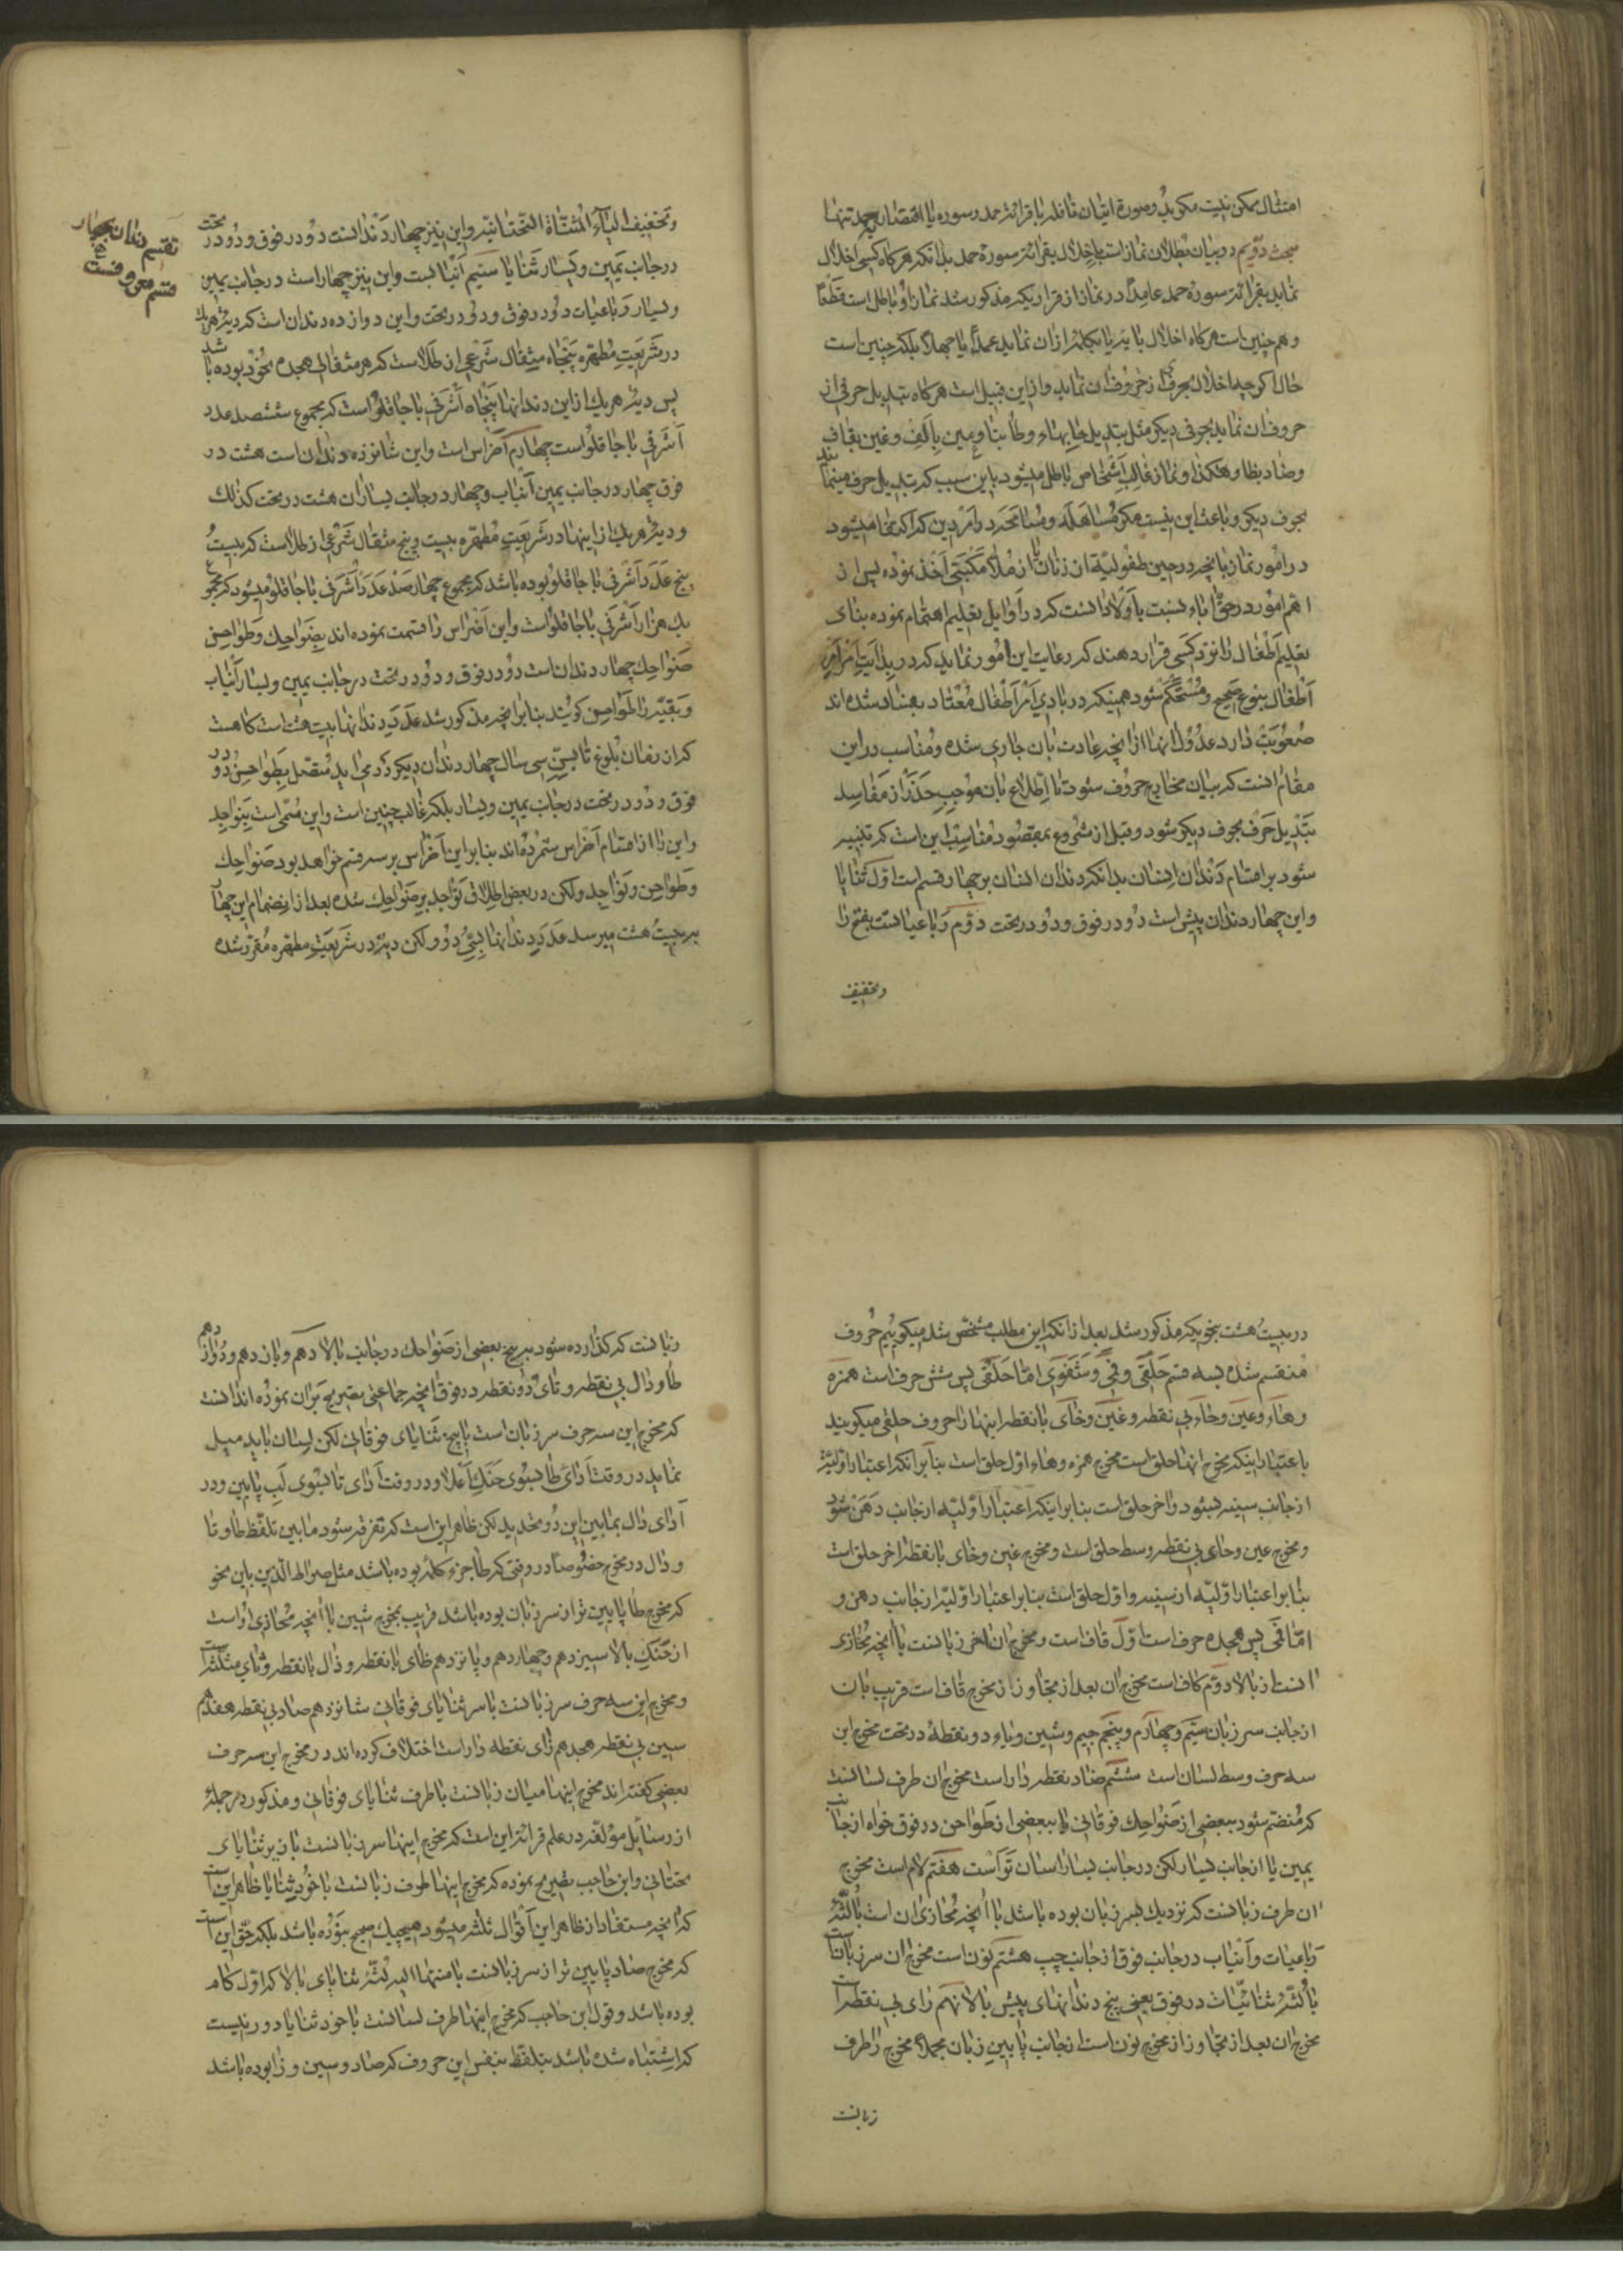 امتثال ممکن نیست مگر بدو صورة اتیان نافله با قرائة حمد و سوره یا اقتصار بحمد تنها
مبحث دویم در بیان بطلان نماز است باخلال بقرائة سورهٔ حمد بدانکه هرگاه کسی اخلال
نماید بقرائة سورهٔ حمد عامداً در نماز از قراریکه مذکور شد نماز او باطل است قطعاً
و همچنین است هرگاه اخلال بآیه یا بکلمهٔ از ان نماید عمداً یا جهلاً بلکه چنین است
حال اگرچه اخلال بحرفی از حروف ان نماید و از این قبیل است هرگاه تبدیل حرفی از
حروف ان نماید بحرفی دیگر مثل تبدیل حا بهاء و طا بتا و عین بالف و غین بقاف
و ضاد بظا و هکذا و نماز غالب اشخاص باطل میشود باین سبب که تبدیل حرف مینمایند
بحرف دیگر و باعث این نیست مگر مساهله و مسامحه در امر دین که اکتفا میشود
در امور نماز بانچه در حین طفولیة از زنان یا از ملاء مکتبی اخذ نموده پس از
اهم امور در حق اباء نسبت باولاد انست که در اوایل تعلیم اهتمام نموده بنای
تعلیم اطفال را نزد کسی قرار دهند که رعایت این امور نماید که در بدایت امر امر
اطفال بنوع صحیح و مستحکم شود همینکه در بادی امر اطفال معتاد بفساد شده اند
صعوبت دارد عدول انها از انچه عادت بان جاری شده و مناسب در این
مقام انست که بیان مخارج حروف شود تا اطلاع بان موجب حذر از مفاسد
تبدیل حرف بحرف دیگر شود و قبل از شروع بمقصود مناسب این است که تنبیه
شود بر اقسام دندان انسان بدانکه دندان انسان بر چهار قسم است اول ثنایا
و این چهار دندان پیش است دو در فوق و دو در تحت دوم رباعیاتست بفتح را
و تخفیف
و تخفیف الیاء المثناة التحتانیه و این نیز چهار دندانست دو در فوق و دو در تحت
در جانب یمین و یسار ثنایا سیم انیابست و این نیز چهار است در جانب یمین
و یسار رباعیات دو در فوق و دو در تحت و این دوازده دندان است که دیهٔ هر یک
در شریعت مطهره پنجاه مثقال شرعی از طلا است که هر مثقالی هجده نخود بوده باشد
پس دیهٔ هر یک از این دندانها پنجاه اشرفی باجاقلو است که مجموع ششصد عدد
اشرفی باجاقلو است چهارم اضراس است و این شانزده دندان است هشت در
فوق چهار در جانب یمین انیاب و چهار در جانب یسار ان هشت در تحت کذلک
و دیهٔ هر یک از اینها در شریعت مطهره بیست و پنج مثقال شرعی از طلا است که بیست
و پنج عدد اشرفی باجاقلو بوده باشد که مجموع چهار صد عدد اشرفی باجاقلو میشود که مجموع
یک هزار اشرفی باجاقلو است و این اضراس را قسمت نموده اند بضواحک و طواحن
ضواحک چهار دندان است دو در فوق و دو در تحت در جانب یمین و یسار انیاب
و بقیه را طواحن گویند بنابر انچه مذکور شد عدد دندانها بیست هشت است گاه هست
که از زمان بلوغ تا بسن سی سال چهار دندان دیگر در می اید متصل بطواحن دو در
فوق و دو در تحت در جانب یمین و یسار بلکه غالب چنین است و این مسمی است بنواجد
و این را از اقسام اضراس شمرده اند بنابر این اضراس بر سه قسم خواهد بود ضواحک
و طواحن و نواجد ولکن در بعض اطلاق نواجد بر ضواحک شده بعد از انضمام این چهار
بر بیست هشت میرسد عدد دندانها بسی و دو ولکن دیه در شریعت مطهره مقرر شده
تقسیم دندان بچهار
قسم معروفست
در بیست هشت بنحویکه مذکور شد بعد از انکه این مطلب مشخص شد میگوییم حروف
منقسم شده بسه قسم حلقی و فمی و شفوی اما حلقی پس شش حرف است همزه
و هاء و عین و حاء بی نقطه و غین و خای با نقطه اینها را حروف حلقی میگویند
باعتبار اینکه مخرج انها حلق است مخرج همزه و هاء اول حلق است بنابر انکه اعتبار اولیه
از جانب سینه شود و اخر حلق است بنابر اینکه اعتبار اولیه از جانب دهن شود
و مخرج عین و حای بی نقطه وسط حلق است و مخرج غین و خای با نقطه اخر حلق است
بنابر اعتبار اولیه از سینه و اول حلق است بنابر اعتبار اولیه از جانب دهن و
اما فمی پس هجده حرف است اول قاف است و مخرج ان اخر زبانست با انچه محاذی
انست از بالا دوم کاف است مخرج ان بعد از تجاوز از مخرج قاف است قریب بان
از جانب سر زبان سیم و چهارم و پنجم جیم و شین و یاء دو نقطهٔ در تحت مخرج این
سه حرف وسط لسان است ششم ضاد نقطه دار است مخرج ان طرف لسانست
که منضم شود ببعضی از ضواحک فوقانی یا ببعضی از طواحن در فوق خواه از جانب
یمین یا از جانب یسار لکن در جانب یسار اسان تر است هفتم لام است مخرج
ان طرف زبانست که نزدیک بسر زبان بوده باشد با انچه محاذی ان است بالثه
رباعیات و انیاب در جانب فوق از جانب چپ هشتم نون است مخرج ان سر زبان است
با لثه ثنائیات در فوق یعنی بیخ دندانهای پیش بالا نهم رای بی نقطه است
مخرج ان بعد از تجاوز از مخرج نون است از جانب پایین زبان مجملاً مخرج را طرف
زبانست
زبانست که گذارده شود به بیخ بعضی از ضواحک در جانب بالا دهم و یازدهم و دوازدهم
طا و دال بی نقطه و تای دو نقطه در فوق انچه جماعتی تصریح بران نموده اند انست
که مخرج این سه حرف سر زبان است با بیخ ثنایای فوقانی لکن لسان باید میل
نماید در وقت ادای طا بسوی حنک اعلا و در وقت ادای تا بسوی لب پایین و در
ادای دال بمابین این دو تحدید لکن ظاهر این است که تفرقه شود مابین تلفظ طا و تا
و دال در مخرج خصوصاً در وقتی که طا جزء کلمه بوده باشد مثل صراط الذین باین نحو
که مخرج طا پایین تر از سر زبان بوده باشد قریب بمخرج شین با انچه محاذی او است
از حنک بالا سیزدهم و چهاردهم و پانزدهم ظای با نقطه و ذال با نقطه و ثای مثلثه است
و مخرج این سه حرف سر زبانست با سر ثنایای فوقانی شانزدهم صاد بی نقطه هفدهم
سین بی نقطه هجدهم زای نقطه دار است اختلاف کرده اند در مخرج این سه حرف
بعضی گفته اند مخرج اینها میان زبانست با طرف ثنایای فوقانی و مذکور در جملهٔ
از رسائل مؤلفه در علم قرائة این است که مخرج اینها سر زبانست با زیر ثنایای
تحتانی و ابن حاجب تصریح نموده که مخرج اینها طرف زبانست با خود ثنایا ظاهر این است
که انچه مستفاد از ظاهر این اقوال ثلثه میشود هیچیک صحیح نبوده باشد بلکه حق این است
که مخرج صاد پایین تر از سر زبانست با منتها الیه لثهٔ ثنایای بالا که اول کام
بوده باشد و قول ابن حاجب که مخرج اینها طرف لسانست با خود ثنایا دور نیست
که اشتباه شده باشد بتلفظ بنفس این حروف که صاد و سین و زا بوده باشد